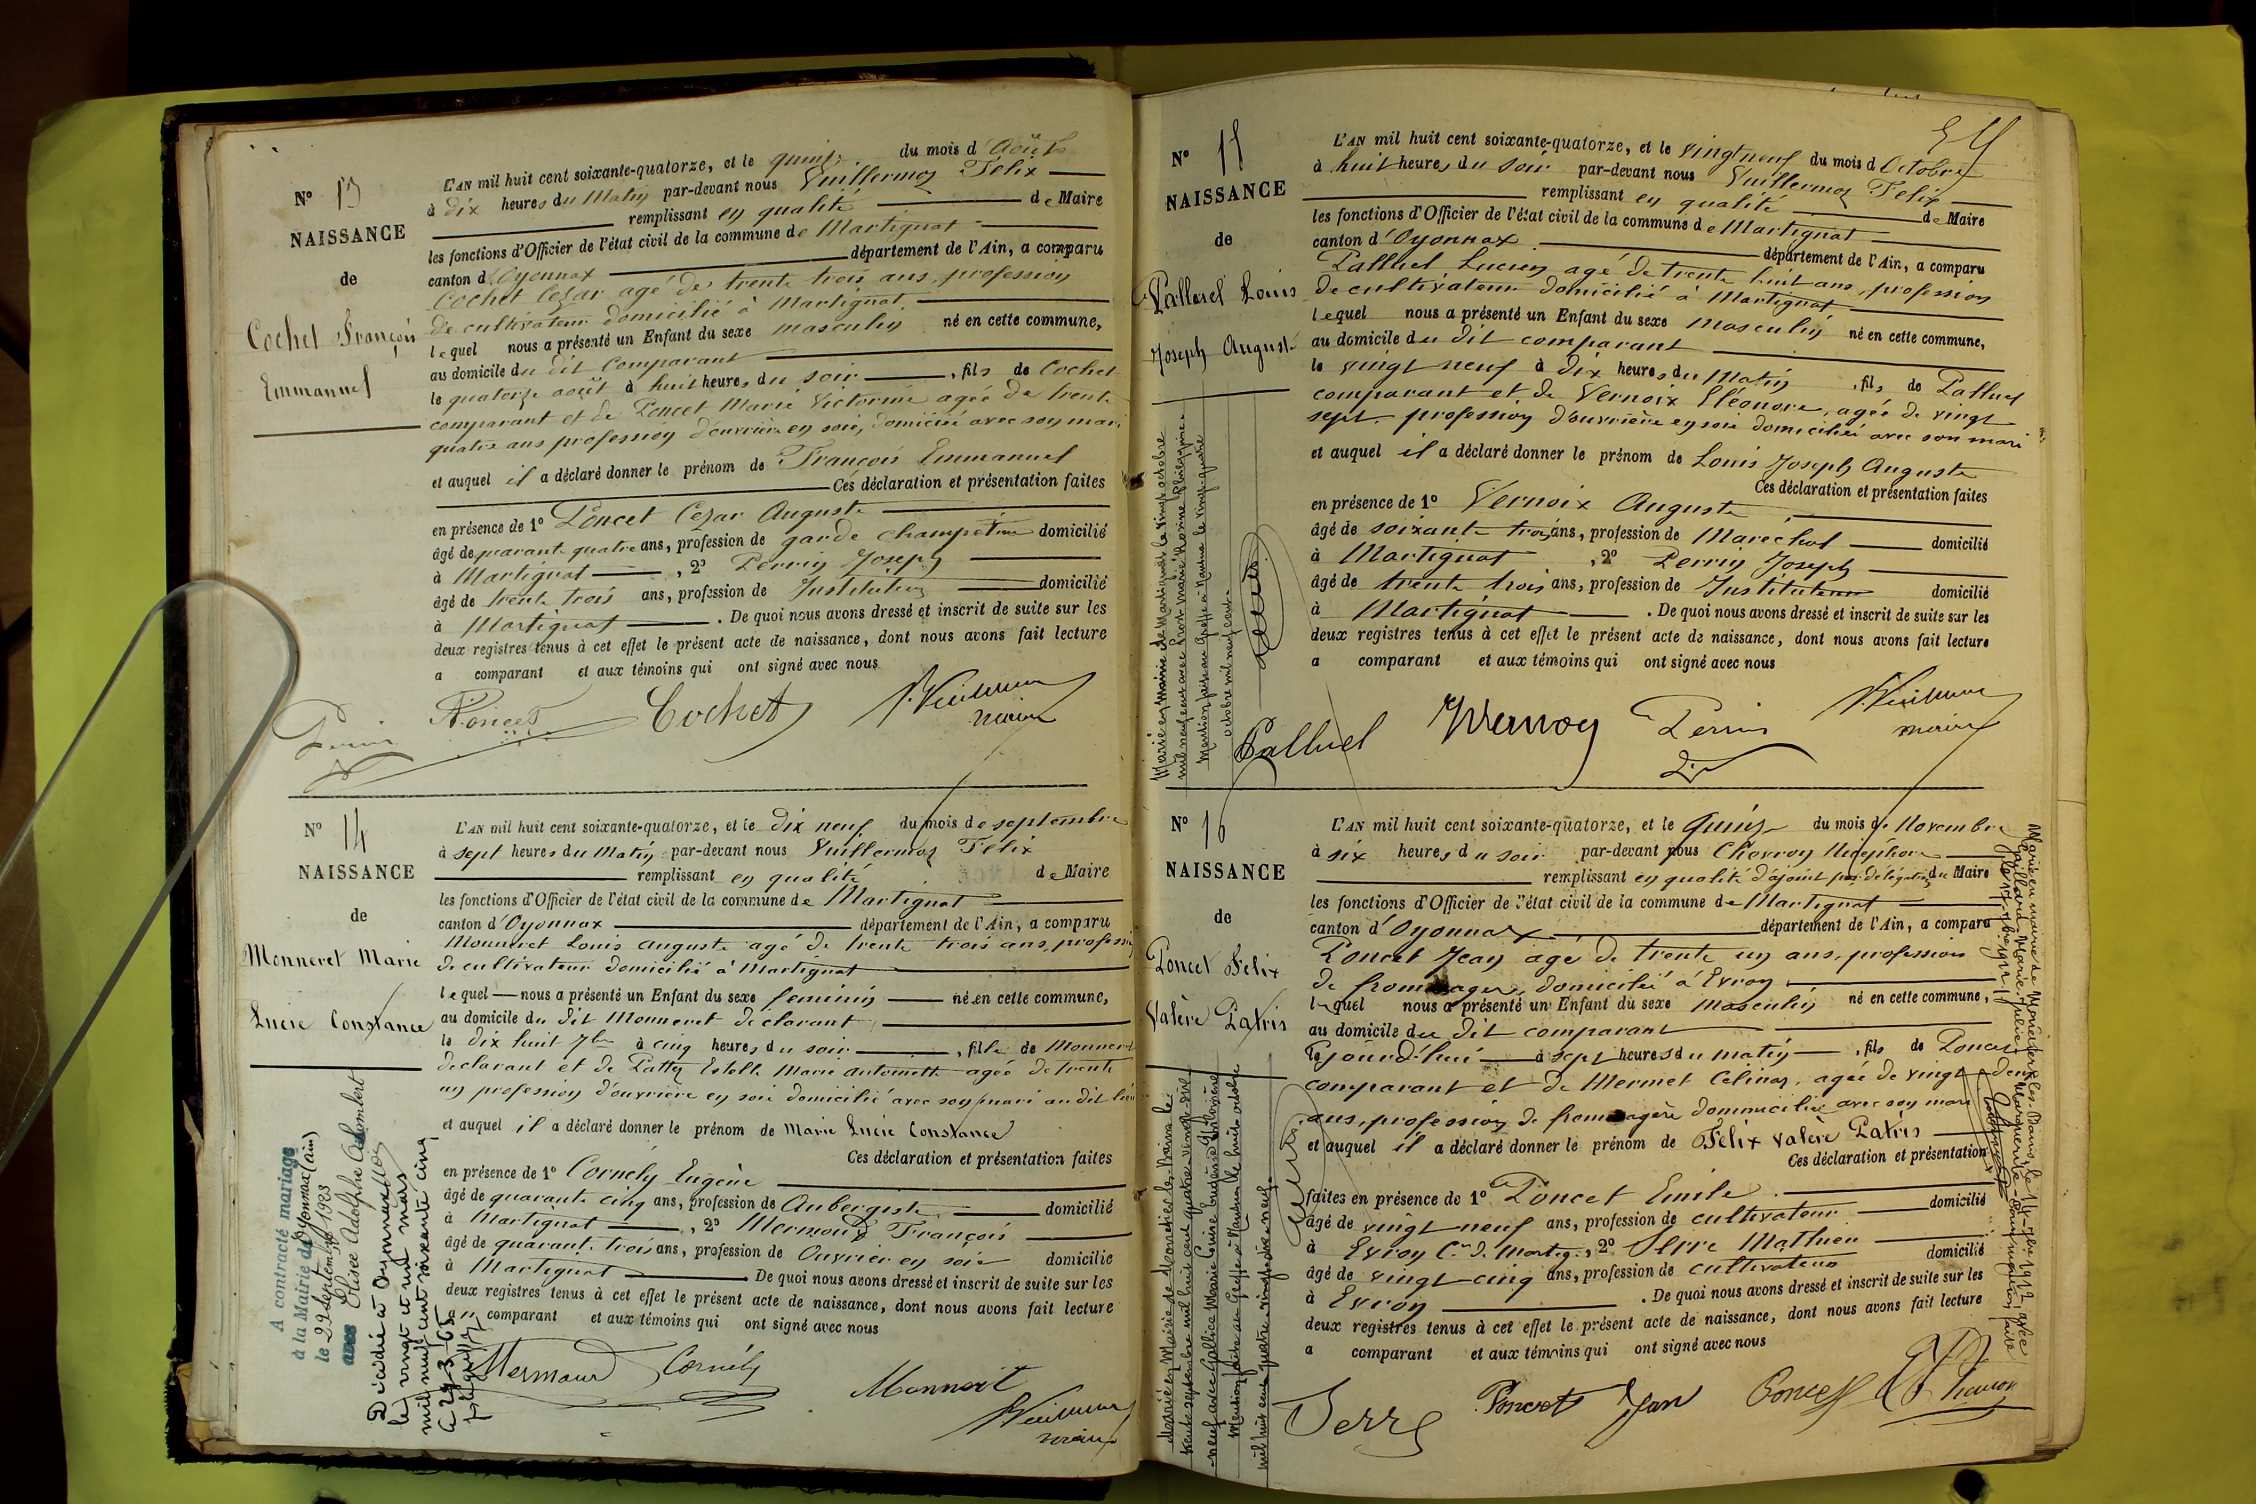 N° 13
NAISSANCE
de
Cochet François
Emmanuel
L'AN mil huit cent soixante-quatorze, et le quinze du mois d'Août
à dix heures du Matin par-devant nous Vuillermoz Félix
remplissant en qualité de Maire
les fonctions d'Officier de l'état civil de la commune de Martignat
canton d'Oyonnax département de l'Ain, a comparu
Cochet Cezar agé de trente trois ans, profession
de cultivateur domicilié à Martignat
lequel nous a présenté un Enfant du sexe masculin né en cette commune,
au domicile du dit Comparant
le quatorze août à huit heures du soir, fils de Cochet
comparant et de Poncet Marie Victorine agée de trente
quatre ans profession d'ouvrière en soie, domiciliée avec son mari
et auquel il a déclaré donner le prénom de François Emmanuel
Ces déclaration et présentation faites
en présence de 1° Poncet Cezar Auguste
âgé de quarante quatre ans, profession de garde champêtre domicilié
à Martignat, 2° Perrin Joseph
âgé de trente trois ans, profession de Instituteur domicilié
à Martignat. De quoi nous avons dressé et inscrit de suite sur les
deux registres tenus à cet effet le présent acte de naissance, dont nous avons fait lecture
a comparant et aux témoins qui ont signé avec nous
Perrin Poncet Cochet F. Vuillermoz
maire
N° 14
NAISSANCE
de
Monneret Marie
Lucie Constance
L'AN mil huit cent soixante-quatorze, et le dix neuf du mois de septembre
à sept heures du Matin par-devant nous Vuillermoz Félix
remplissant en qualité de Maire
les fonctions d'Officier de l'état civil de la commune de Martignat
canton d'Oyonnax département de l'Ain, a comparu
Monneret Louis auguste agé de trente trois ans, profession
de cultivateur domicilié à Martignat
lequel nous a présenté un Enfant du sexe feminin né en cette commune,
au domicile du dit Monneret déclarant
le dix huit 7bre à cinq heures du soir, fille de Monneret
declarant et de Estelle Marie antoinette agée de trente
un profession d'ouvrière en soie domicilié avec son mari au dit lieu
et auquel il a déclaré donner le prénom de Marie Lucie Constance
Ces déclaration et présentation faites
en présence de 1° Cornély Eugène
âgé de quarante cinq ans, profession de Aubergiste domicilié
à Martignat, 2° Mermoud François
âgé de quarante trois ans, profession de Ouvrier en soie domicilié
à Martignat De quoi nous avons dressé et inscrit de suite sur les
deux registres tenus à cet effet le présent acte de naissance, dont nous avons fait lecture
a comparant et aux témoins qui ont signé avec nous
Mermoud Cornély Monneret F. Vuillermoz
maire
A contracté mariage
à la Mairie de Oyonnax (Ain)
le 22 Septembre 1923
avec Elisée Adolphe
Décédée à Oyonnax
le vingt et un mars
mil neuf cent soixante cinq
N° 15
NAISSANCE
de
Palluel Louis
Joseph Auguste
L'AN mil huit cent soixante-quatorze, et le vingt neuf du mois d'Octobre
à huit heures du soir par-devant nous Vuillermoz Félix
remplissant en qualité de Maire
les fonctions d'Officier de l'état civil de la commune de Martignat
canton d'Oyonnax département de l'Ain, a comparu
Palluel Lucien agé de trente huit ans, profession
de cultivateur domicilié à Martignat
lequel nous a présenté un Enfant du sexe Masculin né en cette commune,
au domicile du dit comparant
le vingt neuf à dix heures du Matin, fils de Palluel
comparant et de Vernoix Eléonore, agée de vingt
sept, profession d'ouvrière en soie domiciliée avec son mari
et auquel il a déclaré donner le prénom de Louis Joseph Auguste
Ces déclaration et présentation faites
en présence de 1° Vernoix Auguste
âgé de soixante trois ans, profession de Maréchal domicilié
à Martignat, 2° Perrin Joseph
âgé de trente trois ans, profession de Instituteur domicilié
à Martignat. De quoi nous avons dressé et inscrit de suite sur les
deux registres tenus à cet effet le présent acte de naissance, dont nous avons fait lecture
a comparant et aux témoins qui ont signé avec nous
Palluel Vernoy Perrin F. Vuillermoz
maire
Marié en Mairie de Martignat le vingt octobre
mil neuf cent avec Marie Rosine Philippine
Mention prise au Greffe à Nantua le vingt quatre
octobre mil neuf cent
N° 16
NAISSANCE
de
Poncet Félix
Valère Patris
L'AN mil huit cent soixante-quatorze, et le quinze du mois de Novembre
à six heures du soir par-devant nous Chevron
remplissant en qualité d'ajoint par délégation du Maire
les fonctions d'Officier de l'état civil de la commune de Martignat
canton d'Oyonnax département de l'Ain, a comparu
Poncet Jean agé de trente un ans, profession
de fromager, domicilié à Evron
lequel nous a présenté un Enfant du sexe Masculin né en cette commune,
au domicile du dit comparant
le jourd'hui à sept heures du matin, fils de Poncet
comparant et de Mermet Célina, agée de vingt deux
ans, profession de fromagère dommicilié avec son mari
et auquel il a déclaré donner le prénom de Félix Valère Patris
Ces déclaration et présentation
faites en présence de 1° Poncet Emile
âgé de vingt neuf ans, profession de cultivateur domicilié
à Evron Cne de Martig., 2° Serre Mathieu
âgé de vingt cinq ans, profession de cultivateur domicilié
à Evron. De quoi nous avons dressé et inscrit de suite sur les
deux registres tenus à cet effet le présent acte de naissance, dont nous avons fait lecture
a comparant et aux témoins qui ont signé avec nous
Serre Poncet Jean Poncet Chevron